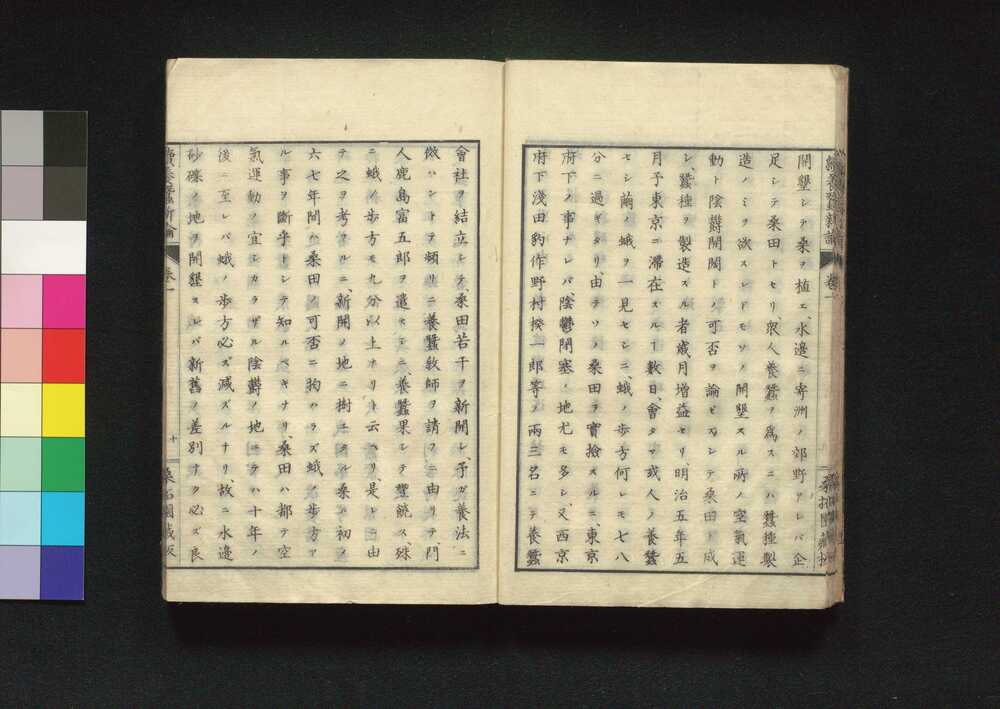 開墾シテ桑ヲ植エ、水邊ニ寄洲ノ郊野アレバ企
足シテ桑田トセリ、衆人養蠶ヲ爲スニハ蠶種製
造ノミヲ欲スレドモソノ開墾スル所ノ空氣運
動ト陰欝開閉トノ可否ヲ論ゼズシテ桑田ト成
シ、蠶種ヲ製造スル者歳月増益セリ、明治五年五
月予東京ニ滞在スルヿ數日、會タマ或人ノ養蠶
セシ繭ノ蛾ヲ一見セシニ、蛾ノ歩方何レモ七八
分ニ過ギタリ、由テソノ桑田ヲ實撿スルニ、東京
府下ノ事ナレバ、陰鬱閉塞ノ地尤モ多シ、又西京
府下淺田豹作野村揆一郎等ノ兩三名ニテ養蠶
會社ヲ結立シテ、桑田若干ヲ新開シ、予ガ養法ニ
倣ハントテ頻リニ養蠶敎師ヲ請フニ由リテ、門
人鹿島富五郎ヲ遣セシニ、養蠶果シテ豐饒ス、殊
ニ蛾ノ歩方モ九分以上アリト云ヘリ、是レニ由
テ之ヲ考フルニ、新開ノ地ニ樹エタル桑ハ初メ
六七年間ハ桑田ノ可否ニ拘ハラズ蛾ノ歩方ア
ル事ヲ斷乎トシテ知ルベキナリ、桑田ハ都テ空
氣運動ノ宜シカラザル陰欝ノ地ニテハ十年ノ
後ニ至レバ蛾ノ歩方必ズ减ズルナリ、故ニ水邊
砂礫ノ地ヲ開墾スレバ新舊ノ差別ナク必ズ良
續養蠶新論
卷一
十